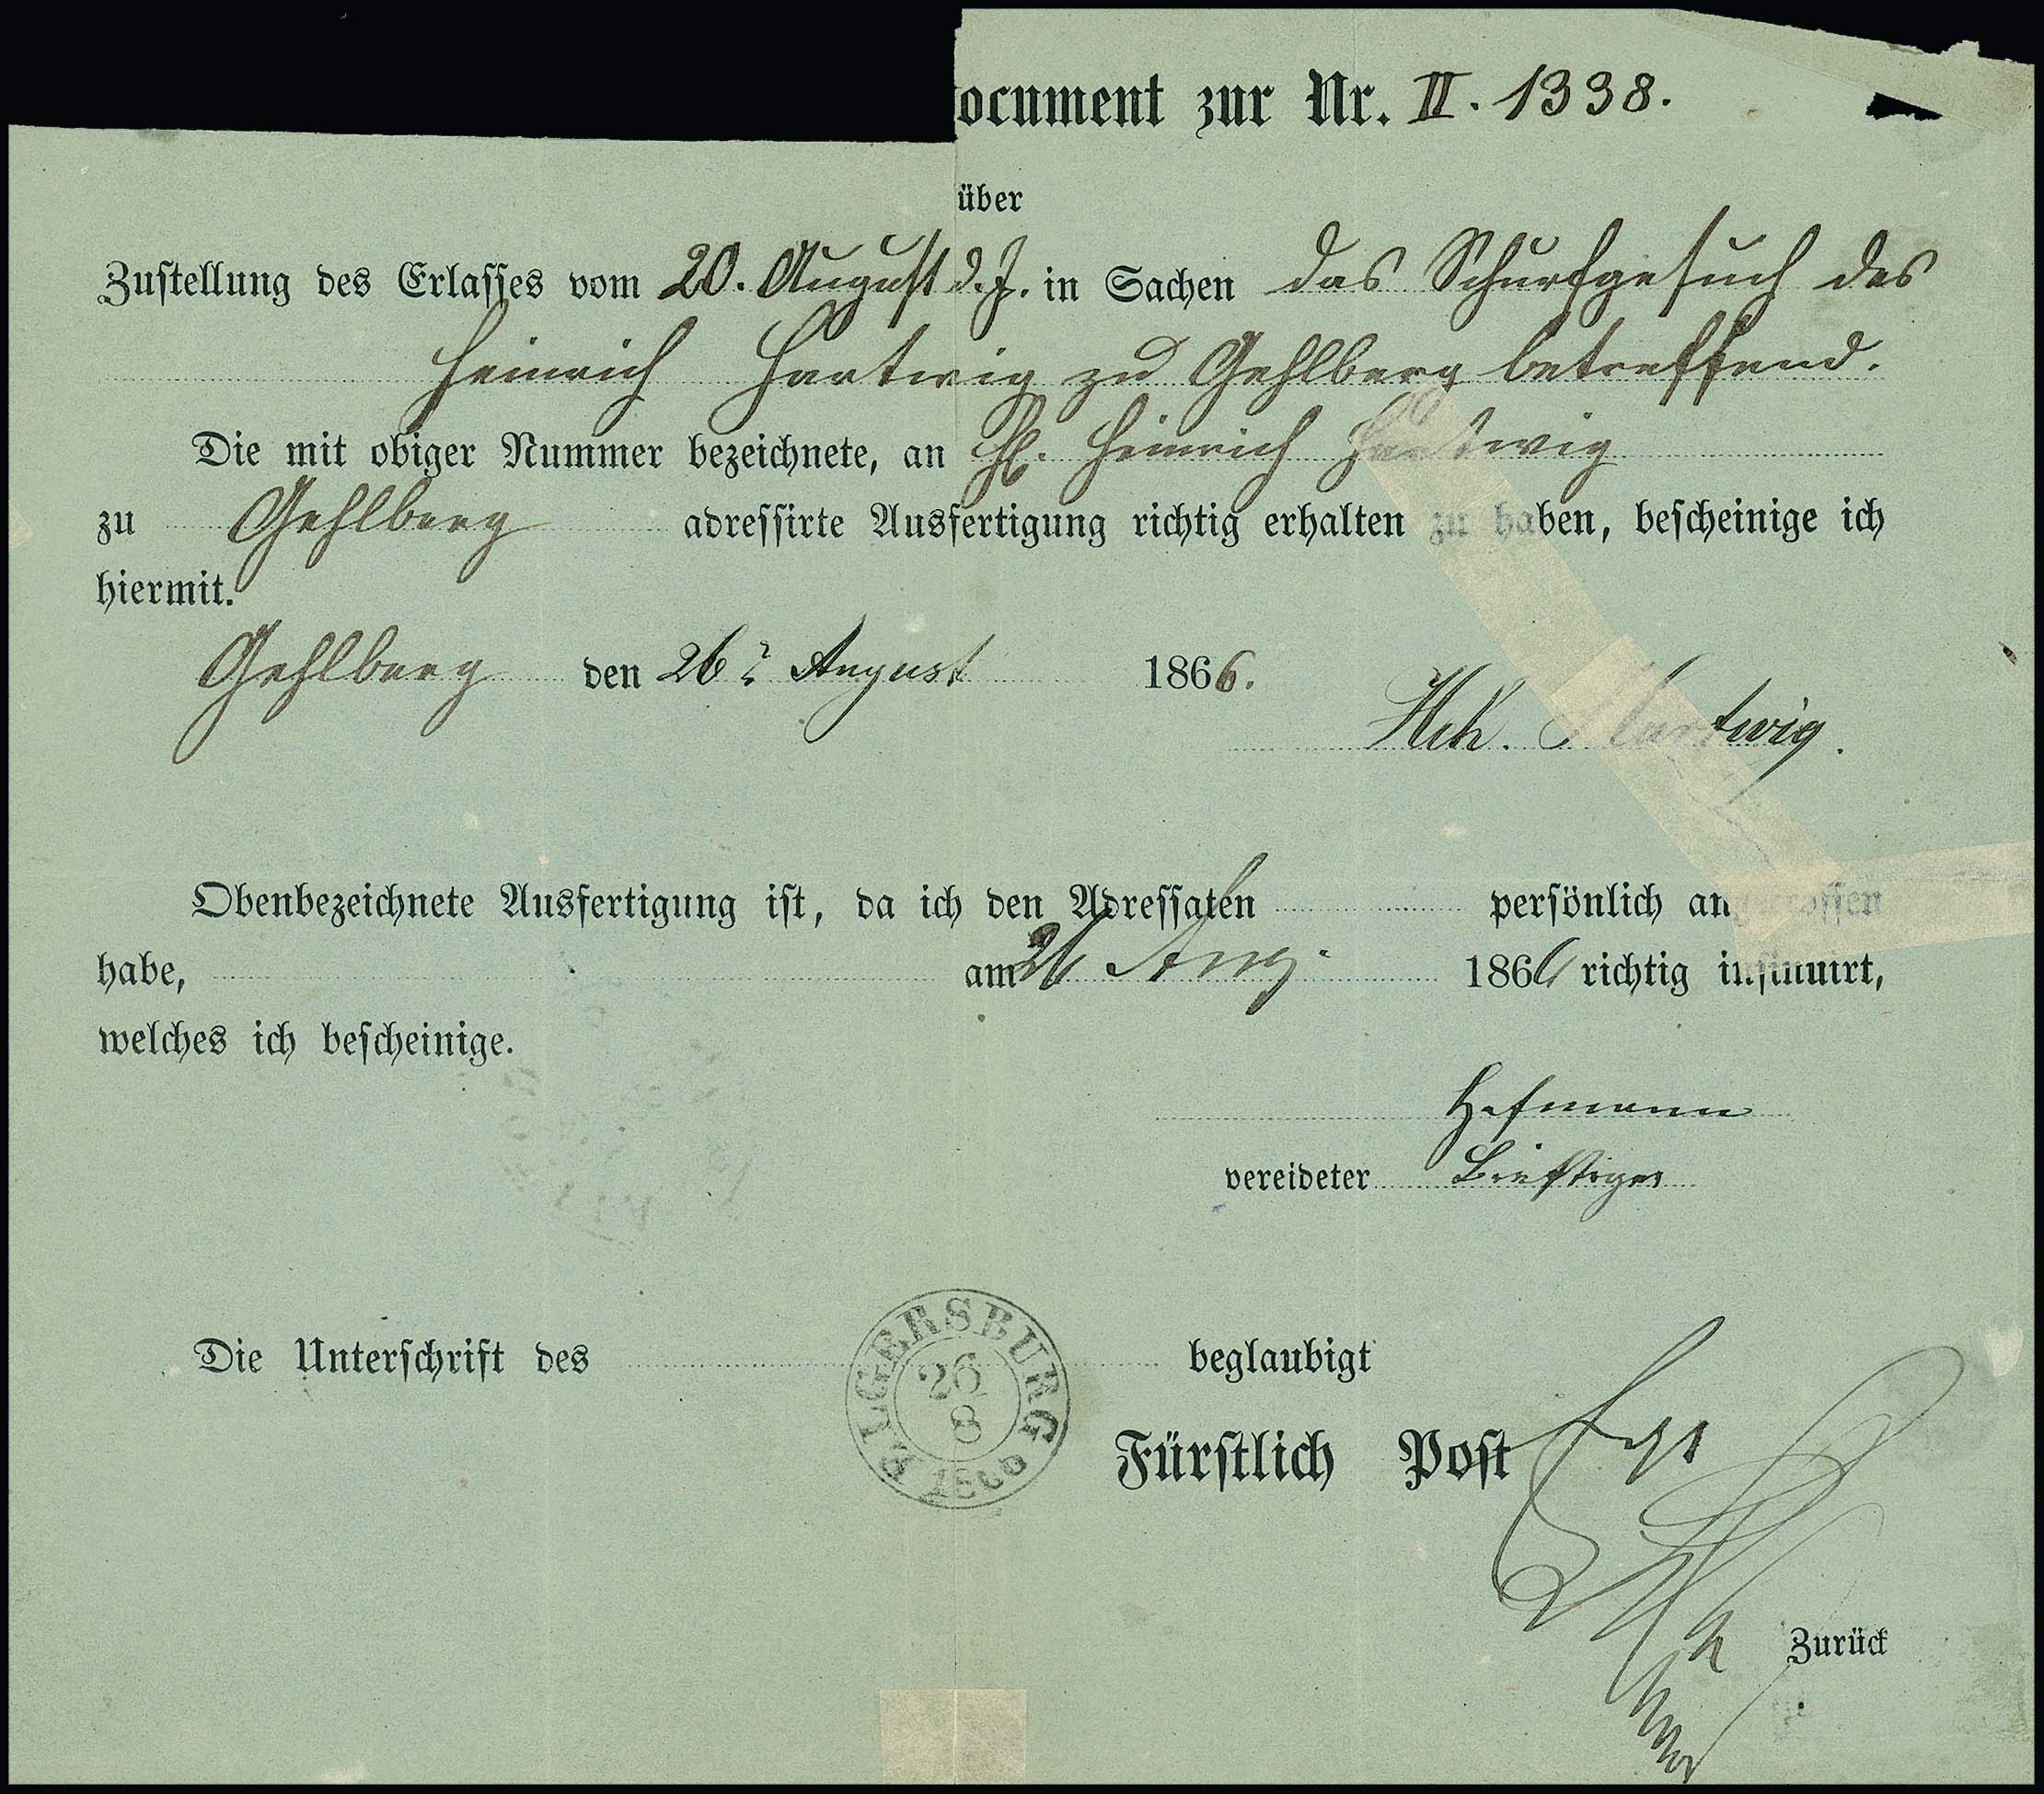 ocument zur Nr. II. 1338.
über
Zustellung des Erlasses vom 20. August d. J. in Sachen das Schurfgesuch des
Heinrich Hartwig zu Gehlberg betreffend.
Die mit obiger Nummer bezeichnete, an H. Heinrich Hartwig
zu Gehlberg adressirte Ausfertigung richtig erhalten zu haben, bescheinige ich
hiermit.
Gehlberg den 26t August 1866.
Hch. Hartwig.
Obenbezeichnete Ausfertigung ist, da ich den Adressaten persönlich angetroffen
habe, am 26 Aug. 1866 richtig insinuirt,
welches ich bescheinige.
Hofmann
vereideter Briefträger
Die Unterschrift des beglaubigt
ELGERSBURG
26
8
1866
Fürstlich Post
Zurück